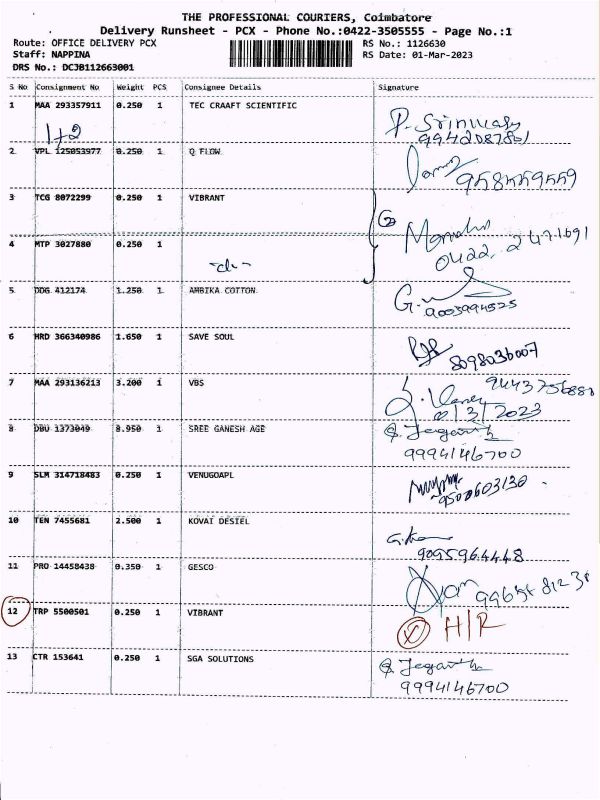 THE PROFESSIONAL COURIERS, Coimbatore
Delivery Runsheet - PCX - Phone No.:0422-3505555 - Page No.:1
Route: OFFICE DELIVERY PCX
RS No.: 1126630
Staff: NAPPINA
RS Date: 01-Mar-2023
DRS No.: DC3B112663001
S No Consignment No Weight PCS Consignee Details Signature
1 MAA 293357911 0.250 1 TEC CRAAFT SCIENTIFIC
P. Srinivasy
9942087801
1+2
2 VPL 125053977 0.250 1 Q FLOW
958559559
3 TCG 8072299 0.250 1 VIBRANT
2
4 MTP 3027880 0.250 1
0422 2471691
-do-
5 DDG 412174 1.250 1 AMBIKA COTTON
9003994525
6 HRD 366340986 1.650 1 SAVE SOUL
8098036007
7 MAA 293136213 3.200 1 VBS
9443756880
01/3/2023
8 DBU 1373049 8.950 1 SREE GANESH AGE
9994146700
9 SLM 314718483 0.250 1 VENUGOAPL
9500603130
10 TEN 7455681 2.500 1 KOVAI DESIEL
9095964448
11 PRO 14458438 0.350 1 GESCO
12 TRP 5500501 0.250 1 VIBRANT
H/R
13 CTR 153641 0.250 1 SGA SOLUTIONS
9994146700